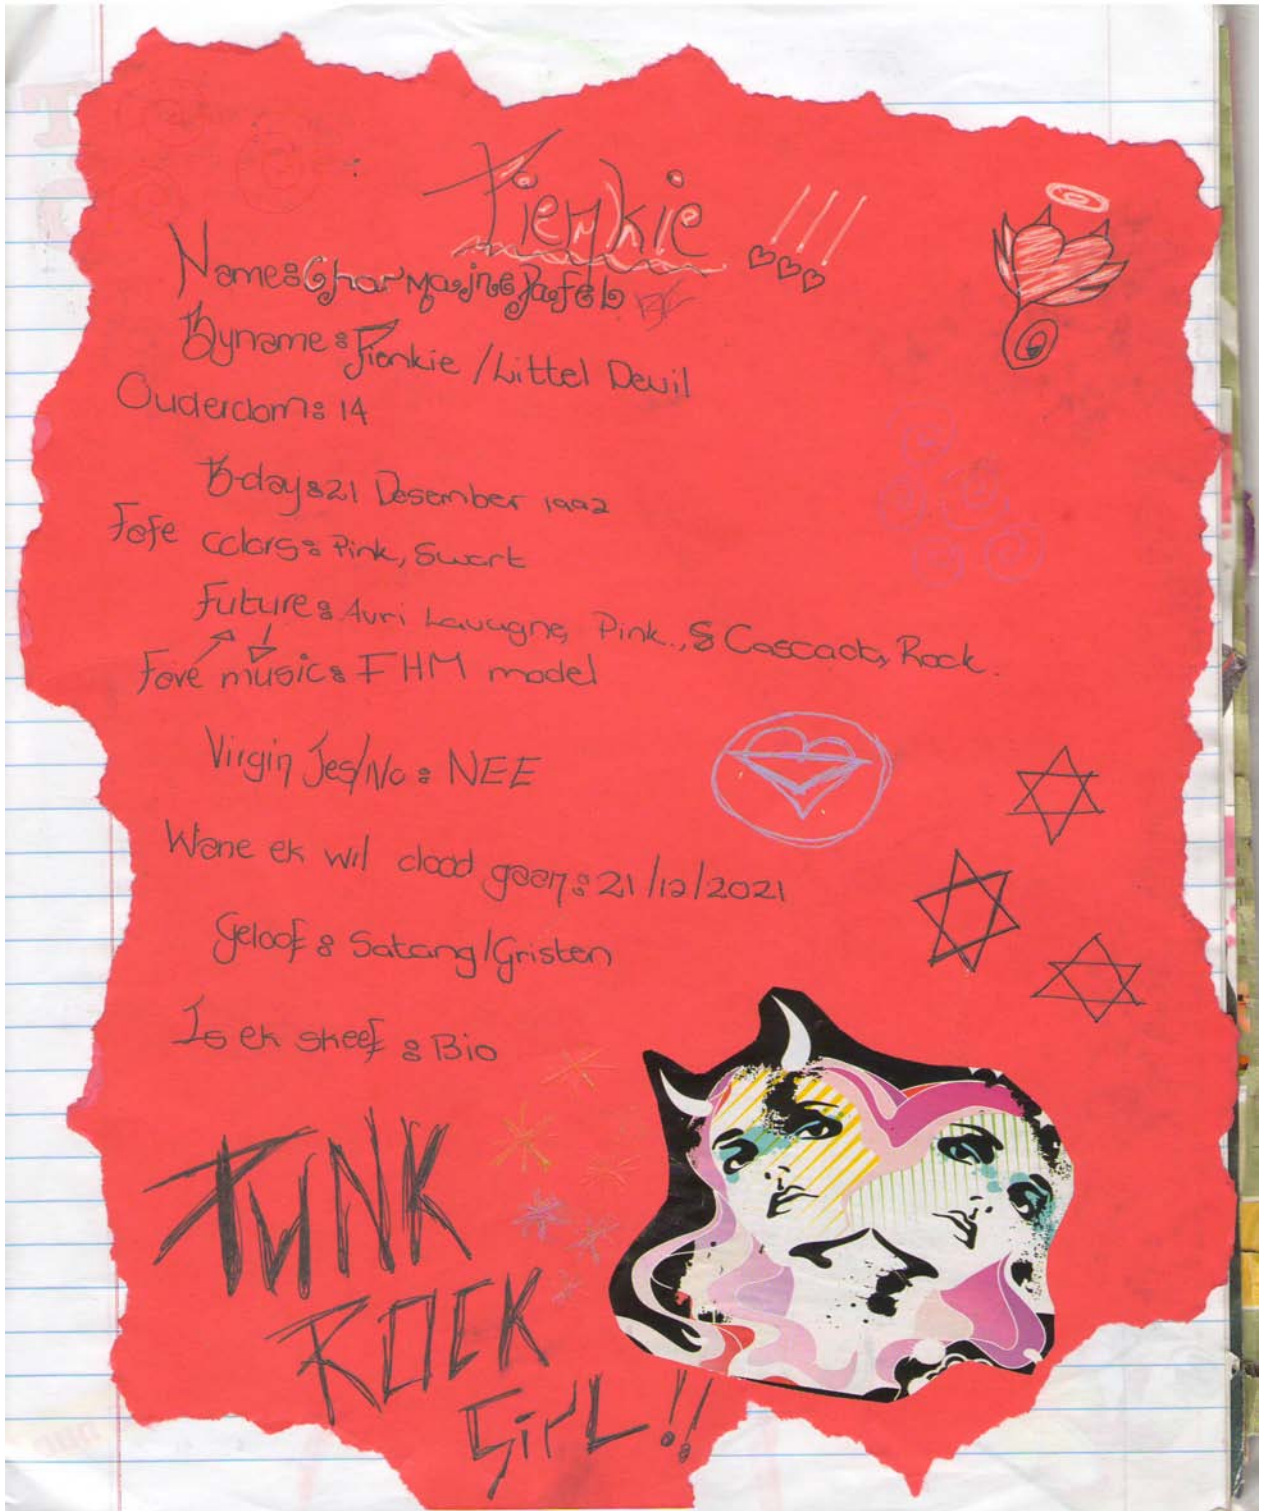 Pienkie !!!
Name: Charmajne Pafel
Byname: Pienkie / Littel Devil
Ouderdom: 14
B-day: 21 Desember 1992
Fafe colors: Pink, Swart
Future: Avri Lavagne, Pink., & Cascada, Rock.
Fave music: FHM model
Virgin Jes/No: NEE
Wane ek wil dood gaan: 21/12/2021
Geloof: Satang/Gristen
Is ek skeef: Bio
PUNK
ROCK
GirL!!